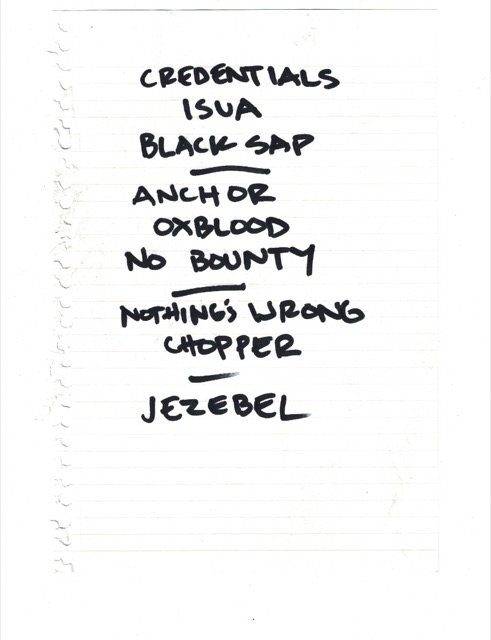 CREDENTIALS
ISUA
BLACK SAP
ANCHOR
OXBLOOD
NO BOUNTY
NOTHING'S WRONG
CHOPPER
JEZEBEL